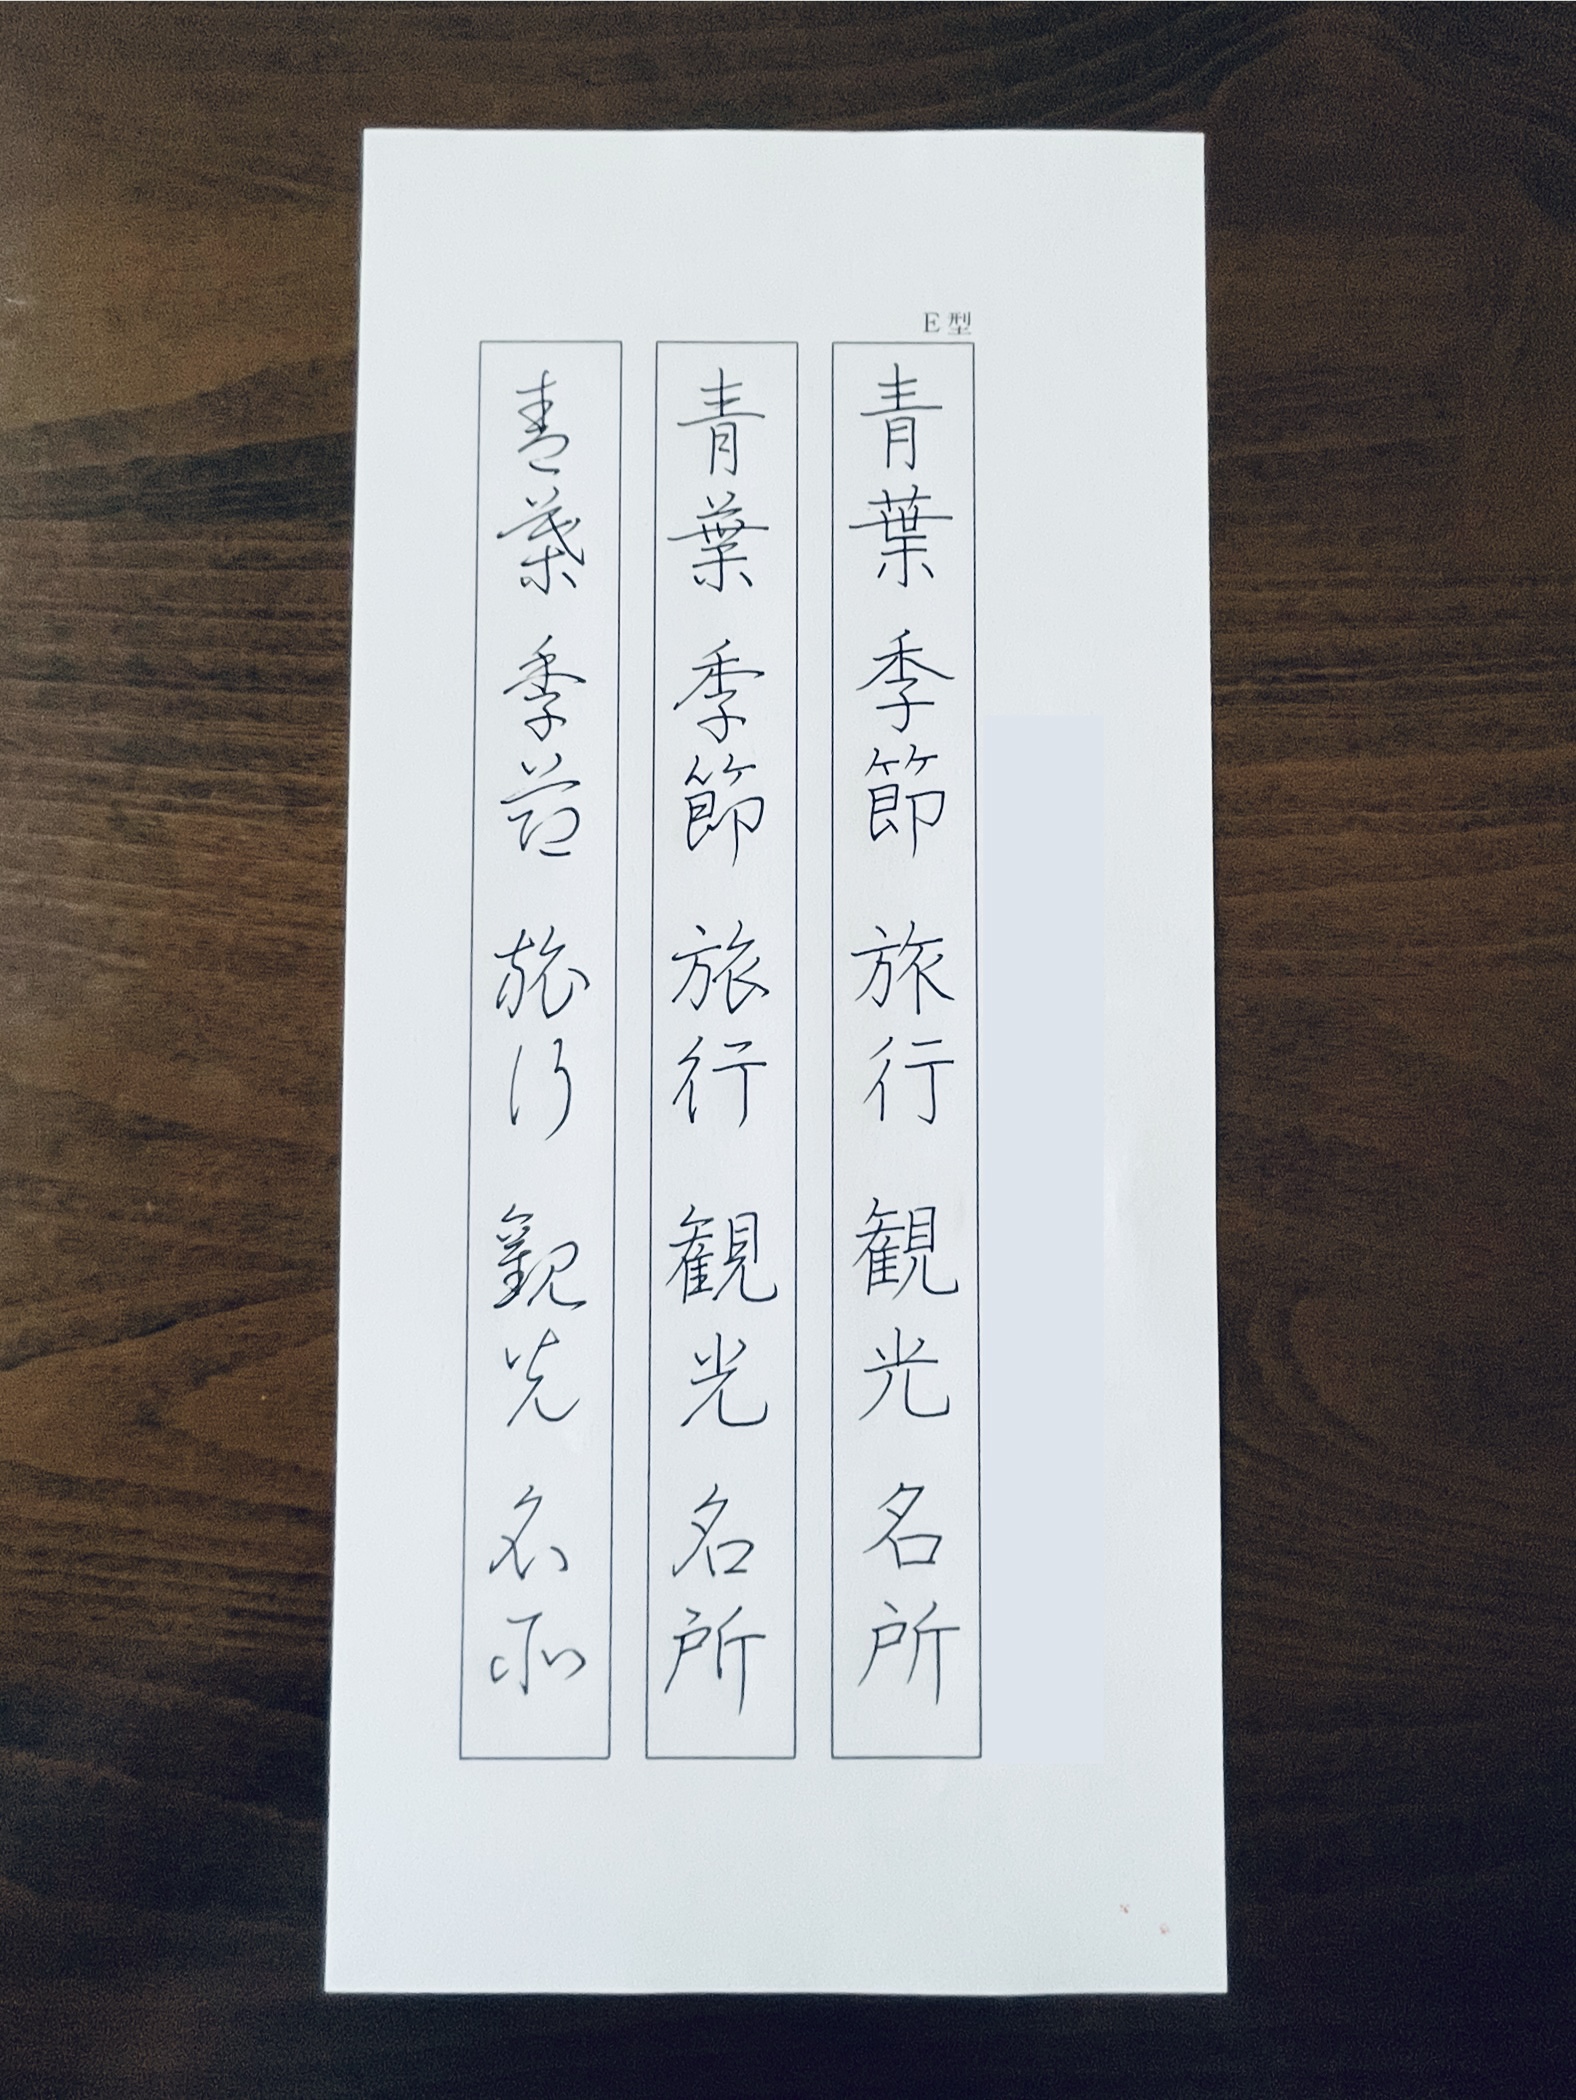 E型
青葉季節旅行観光名所
青葉季節旅行観光名所
青葉季節旅行観光名所